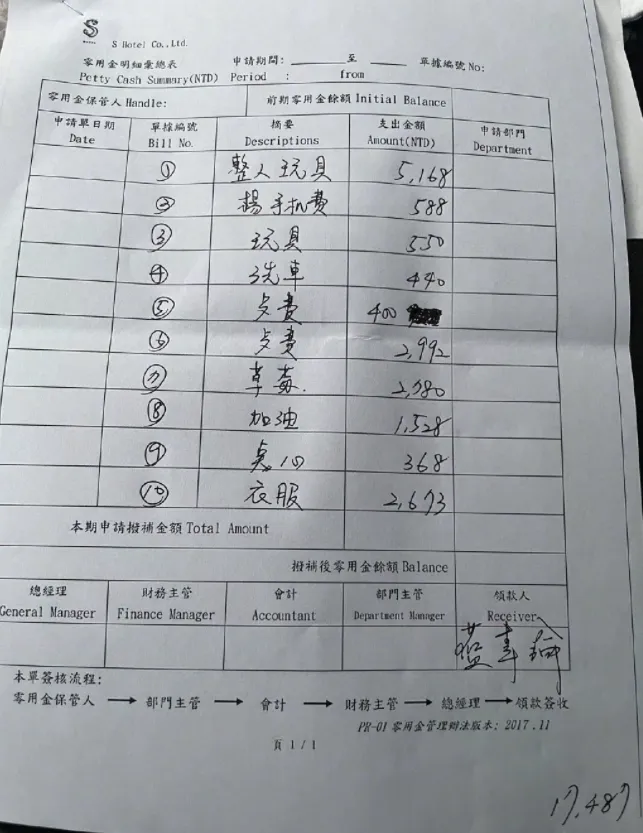 S
S Hotel Co.,Ltd.
零用金明細彙總表 申請期間: 至 單據編號 No:
Petty Cash Summary(NTD) Period : from
零用金保管人 Handle: 前期零用金餘額 Initial Balance
申請單日期 單據編號 摘要 支出金額 申請部門
Date Bill No. Descriptions Amount(NTD) Department
① 整人玩具 5,168
② 楊手机費 588
③ 玩具 550
④ 洗車 440
⑤ 歺費 400
⑥ 歺費 2,992
⑦ 草莓 2,780
⑧ 加油 1,528
⑨ 奌心 368
⑩ 衣服 2,673
本期申請撥補金額 Total Amount
撥補後零用金餘額 Balance
總經理 財務主管 會計 部門主管 領款人
General Manager Finance Manager Accountant Department Manager Receiver
本單簽核流程:
零用金保管人 → 部門主管 → 會計 → 財務主管 → 總經理 → 領款簽收
PR-01 零用金管理辦法版本: 2017.11
頁 1 / 1
17,487